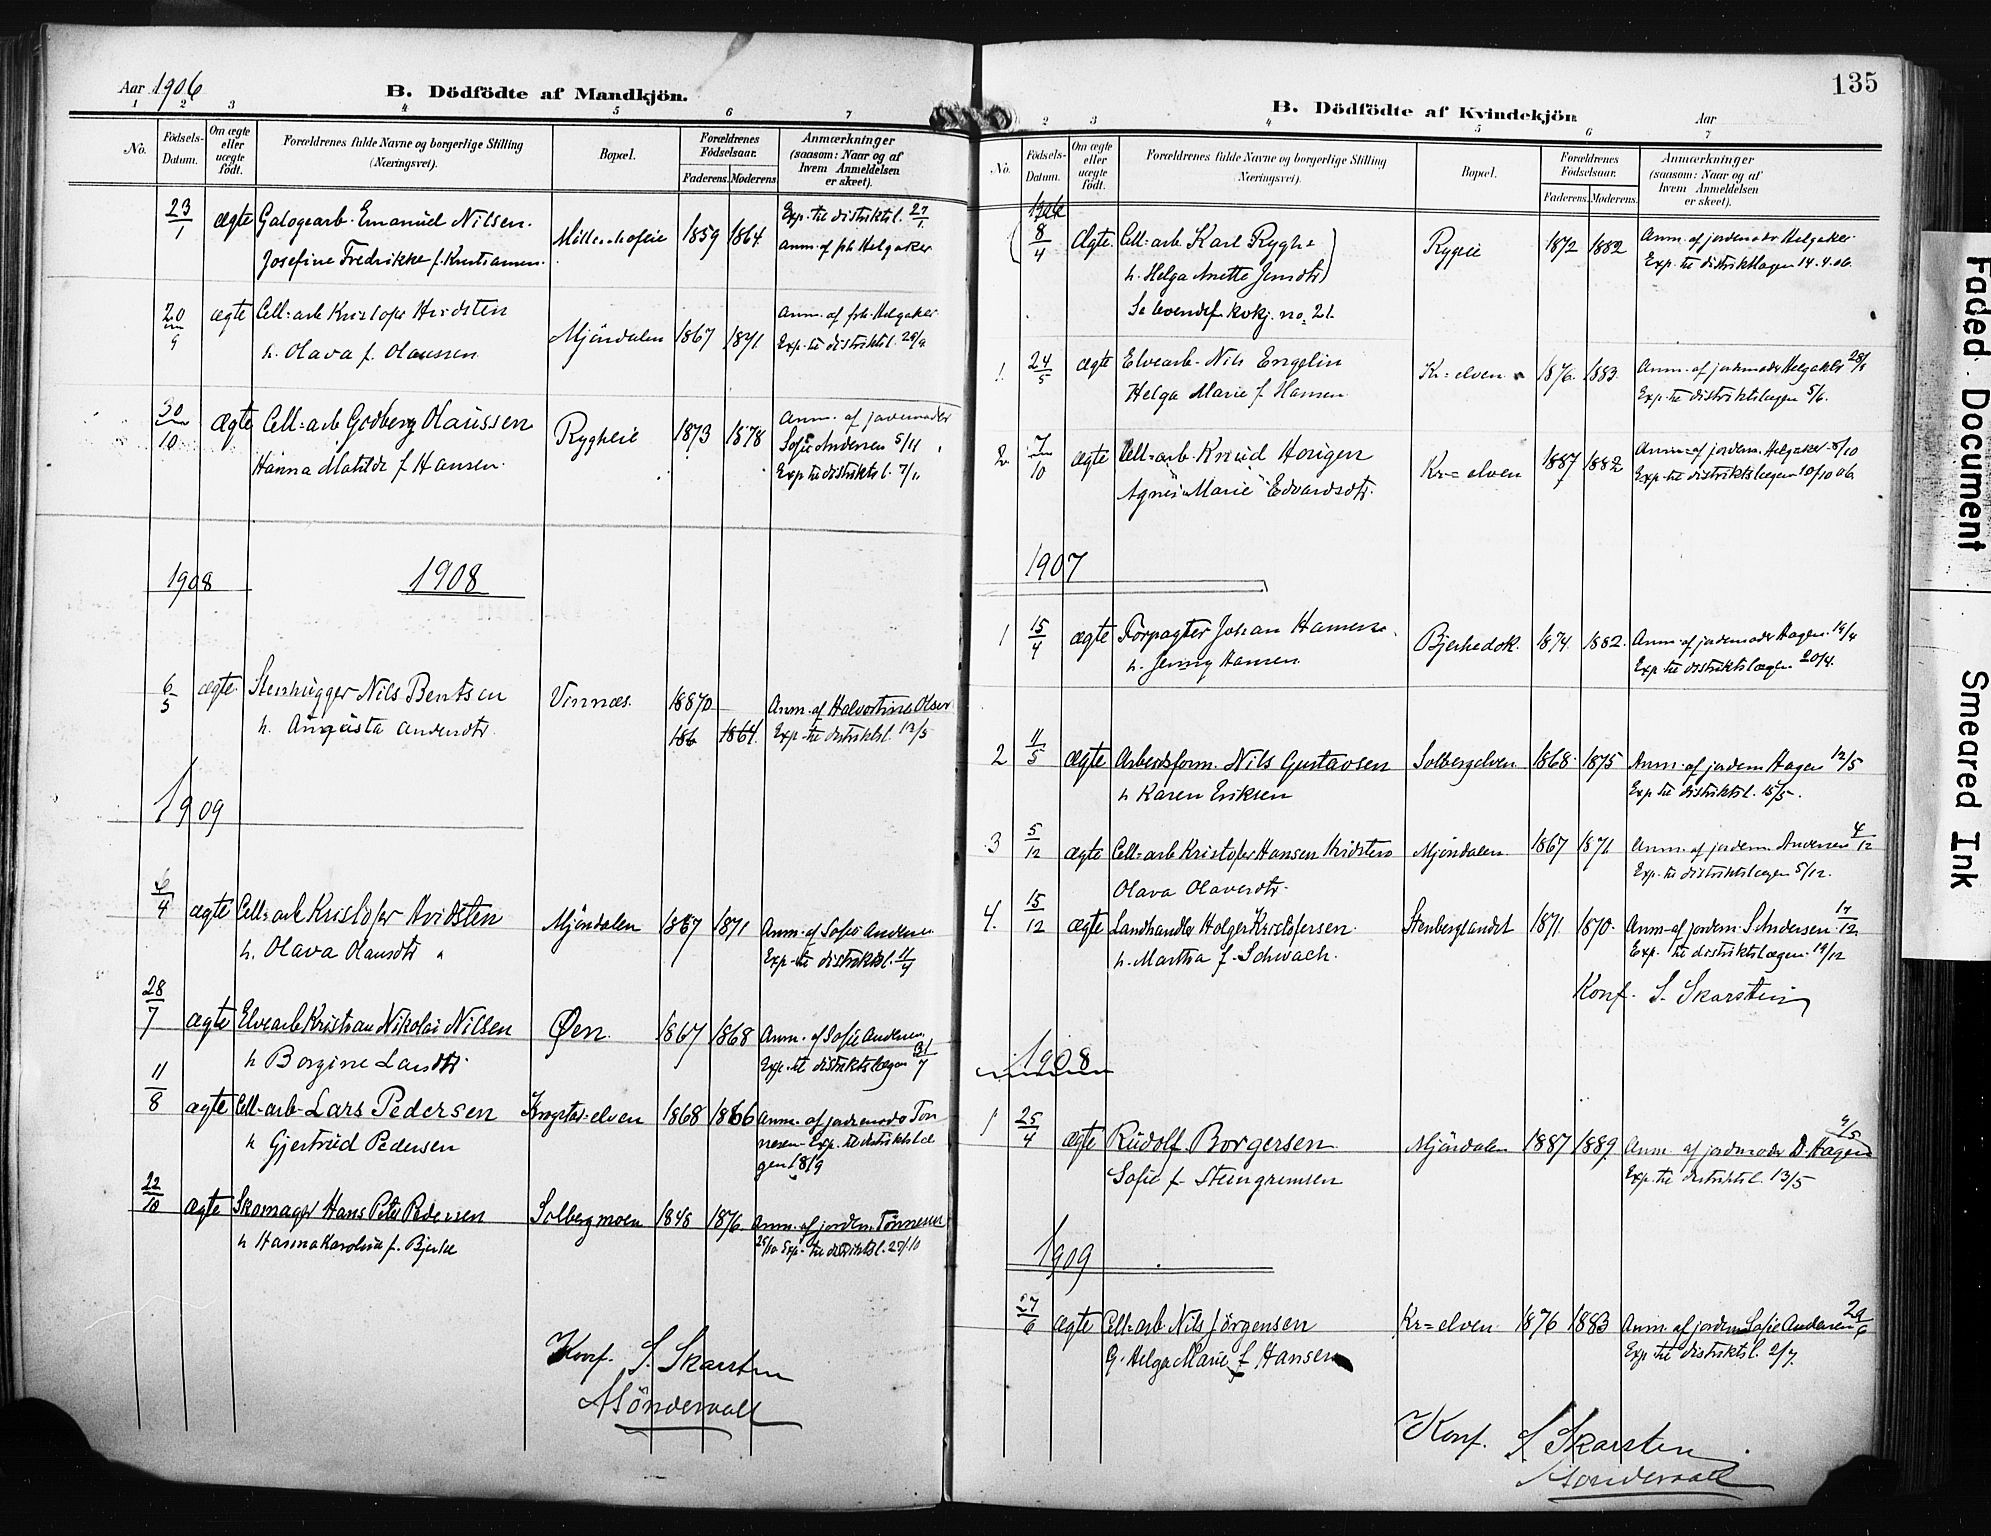 Aar 1906
B. Dödfödte af Mandkjön.
1 2 3 4 5 6 7
No.
Födsels-Datum.
Om ægte eller uægte födt.
Forældrenes fulde Navne og borgerlige Stilling (Næringsvei).
Bopæl.
Forældrenes Födselsaar.
Faderens. Moderens.
Anmærkninger (saasom: Naar og af hvem Anmeldelsen er skeet).
23/1 ægte Galogearb. Emanuel Nilsen. 1859 1864 Exp. til distriktsl. 27/1.
Josefine Fredrikke f. Kristiansen. anm. af frk Helgaker
20/9 ægte Cell=arb Kristofer Hvidsten Mjöndalen 1867 1871 Anm. af frk Helgaker
h. Olava f. Olaussen Exp. til distriktsl. 29/9
30/10 Ægte Cell=arb Godberg Olaussen Rygheie 1873 1878 Anm. af jordmoder
Hanna Matilde f Hansen. Sofie Andersen 5/11
Exp til distriktsl. 7/11
1908 1908
6/5 ægte Stenhugger Nils Bentsen Vinnæs. 18870 Anm. af Halvortine Olsen
h. Augusta Andersdtr. 186 1864. Exp. til distriktsl. 12/5
1909
6/4 ægte Cell=arb Kristofer Hvidsten Mjöndalen 1867 1871 Anm. af Sofie Andersen
h. Olava Olausdtr Exp. til distriktsl. 11/4
28/7 ægte Elvearb Kristian Nikolai Nilsen Øen. 1867 1868 Anm. af Sofie Andersen
h Borgine Larsdtr. Exp. til distriktslægen 31/7
11/8 ægte Cell-arb. Lars Pedersen Krogstad=elven 1868 1866 Anm. af jordemoder Tön
h Gjertrud Pedersen nesen Exp. til distriktslæ
gen 18/9
22/10 ægte Skomager Hans Peter Pedersen Solbergmoen 1848 1876. Anm. af jordem. Tönnesen
h Hanna Karoline f. Bjerke 25/10 Exp. til distriktsl. 27/10
Konf. S. Skarstein
A Sönderaall
135
B. Dödfödte af Kvindekjön Aar
2 3 4 5 6 7
No.
Födsels-Datum.
Om ægte eller uægte födt.
Forældrenes fulde Navne og borgerlige Stilling (Næringsvei).
Bopæl.
Forældrenes Födselsaar.
Faderens. Moderens.
Anmærkninger (saasom: Naar og af hvem Anmeldelsen er skeet).
1906
(8/4 Ægte Cell=arb Karl Ryghe) Rygeie 1872 1882 Anm. af jordemodr Helgaker.
h. Helga Anette Jensdtr) Exp. til distriktslægen 14.4.06.
Se levendef. kvkj. no. 21.
1. 24/5 ægte Elvearb. Nils Engelin Kr=elven 1876. 1883. Anm. af jordemoder Helgaker 28/5
Helga Marie f Hansen Exp. til distriktslægen 5/6.
2. 7/10 ægte Cell=arb. Knud Horigen Kr=elven 1887 1882 Anm. af jordem. Helgaker 8/10
Agnes Marie Edvardsdtr. Exp til distriktslægen 10/10 06.
1907
1 15/4 ægte Forpagter Johan Hansen Bjerkedok. 1874. 1882. Anm. af jordemoder Hagen. 19/4
h. Jenny Hansen Exp til distriktslægen 20/4.
2 11/5 ægte Arbeidsform. Nils Gustavsen Solbergelven 1868. 1875 Anm. af jordem Hagen 12/5
h Karen Eriksen Exp til distriktsl. 15/5.
3 5/12 ægte Cell=arb Kristofer Hansen Hvidsten Mjöndalen 1867 1871 Anm. af jordem. Andersen 4/12
Olava Olavesdtr. Exp. til distriktslægen 5/12.
4. 15/12 ægte Landhandler Holger Kristofersen. Stenberglandet 1871 1870. Anm. af jordem. S. Andersen 17/12
h. Martha f. Schwach. Exp. til distriktslægen 19/12
Konf. S. Skarstein
1908
1 25/4 ægte Rudolf Borgersen Mjöndalen 1887 1889 Anm. af jordmoder D. Hagen 4/5
Sofie f. Steingrimsen Exp. til distriktsl. 13/5
1909
27/6 ægte Cell=arb Nils Jörgensen Kr=elven. 1876 1883 Anm. af jordem Sofie Andersen 29/6
G. Helga Marie f Hansen Exp til distriktsl. 2/7.
Konf. S Skarstein
A Sönderaall
Faded Document
Smeared Ink